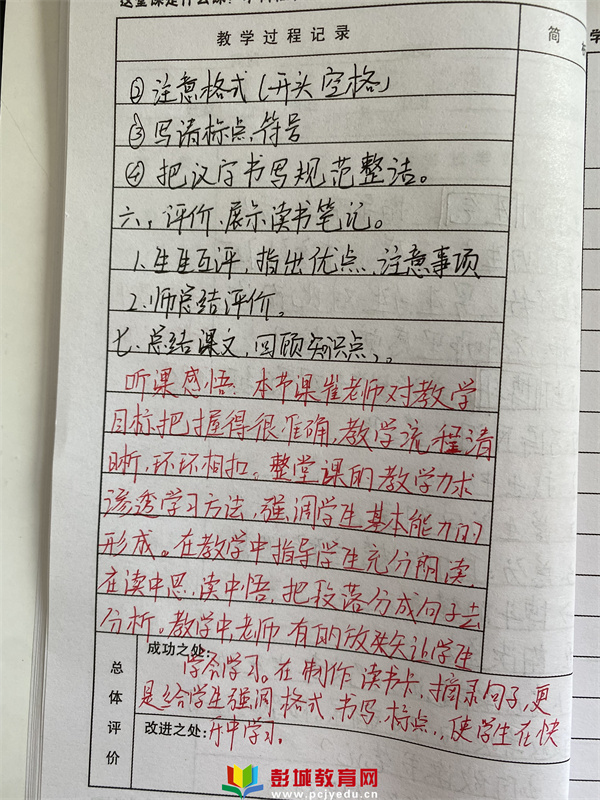 教学过程记录
简
学
②注意格式(开头空格)
③写清标点符号
④把汉字书写规范整洁。
六、评价、展示读书笔记。
1、生生互评,指出优点、注意事项
2、师总结评价。
七、总结课文,回顾知识点。
听课感悟:本节课崔老师对教学
目标把握得很准确,教学流程清
晰,环环相扣。整堂课的教学力求
渗透学习方法,强调学生基本能力的
形成。在教学中指导学生充分朗读
在读中思,读中悟,把段落分成句子去
分析。教学中,老师有的放矢让学生
总体评价
成功之处:
学会学习。在制作读书卡,摘录句子,更
是给学生强调格式、书写、标点,使学生在快
改进之处:
乐中学习。
彭城教育网
www.pcjyedu.cn